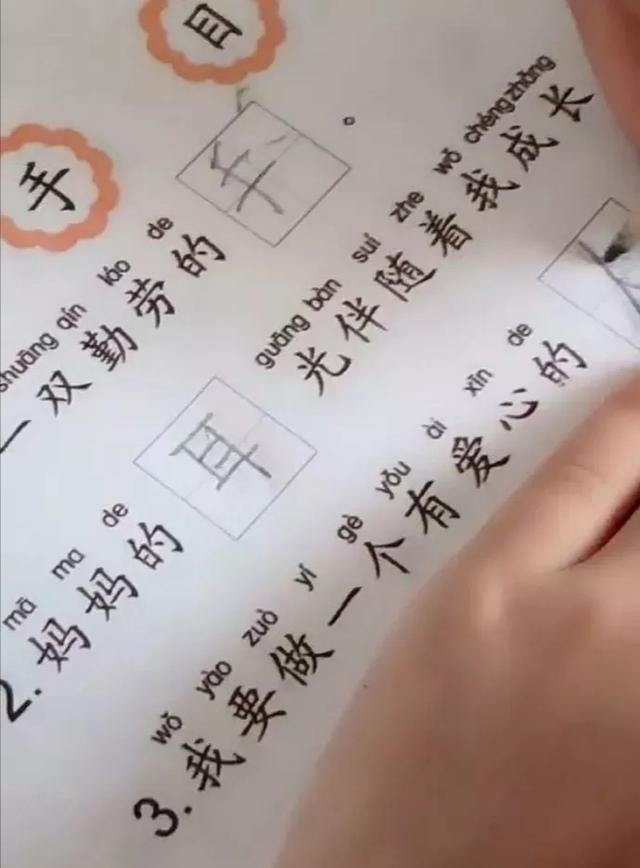 手 目
shuāng qín láo de
一双勤劳的手。
mā ma de guāng bàn suí zhe wǒ chéng zhǎng
2. 妈妈的耳光伴随着我成长
wǒ yào zuò yí gè yǒu ài xīn de
3. 我要做一个有爱心的